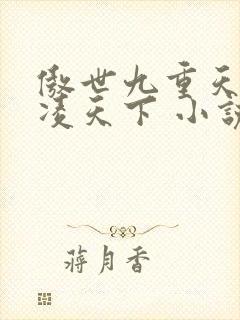 傲世九重天
凌天下 小説
蔣月香